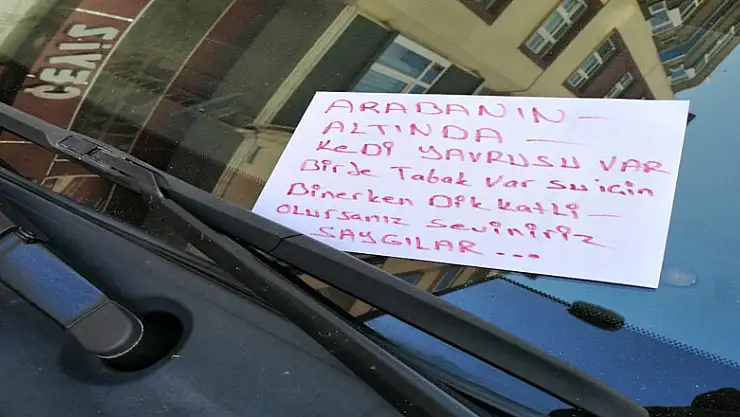 ARABANIN —
ALTINDA —
KEDİ YAVRUSU VAR
Birde Tabak Var su icin
Binerken Dikkatli —
olursanız seviniriz
SAYGILAR...